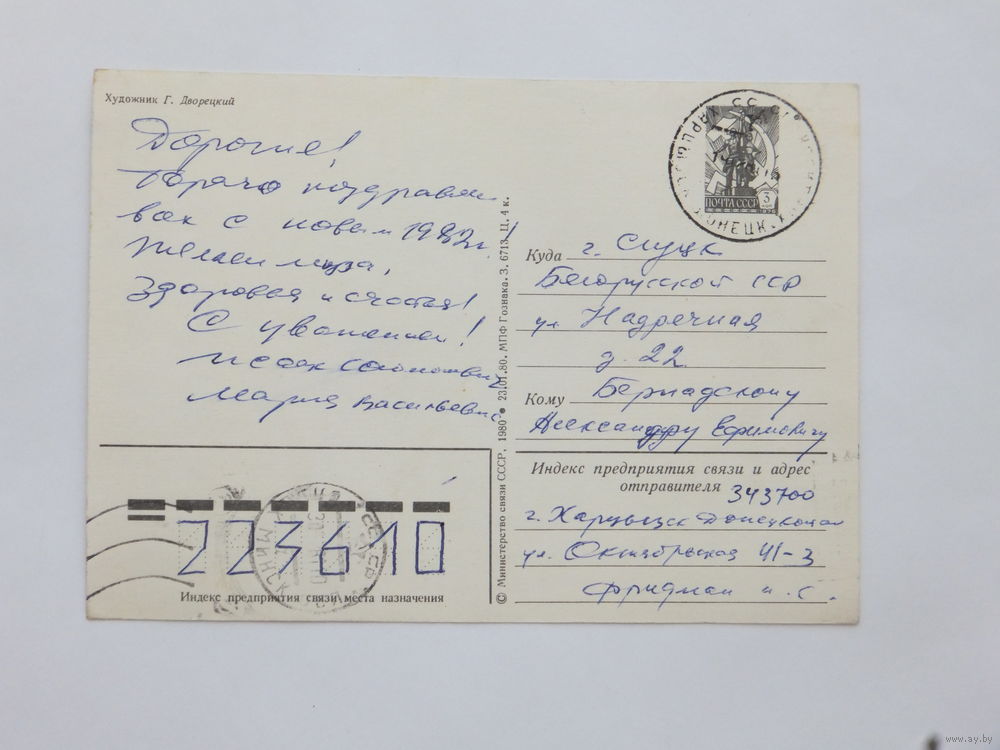 Художник Г. Дворецкий
Дорогие!
Горячо поздравляем
вас с новым 1982г.!
Желаем мира,
Здоровья и счастья!
С уважением!
Исаак
Мария Васильевна
© Министерство связи СССР, 1980 • 23.01.80. МПФ Гознака. З. 6713. Ц. 4 к.
ПОЧТА СССР
3
Куда г. Слуцк
Белорусской ССР
ул Надречная
д. 22
Кому Бернадскому
Александру Ефимовичу
Индекс предприятия связи и адрес
отправителя 343700
г. Харцызск Донецкой
ул. Октябрьская 41-3
Фридман И. С.
223610
МИНСК
Индекс предприятия связи места назначения
www.ay.by